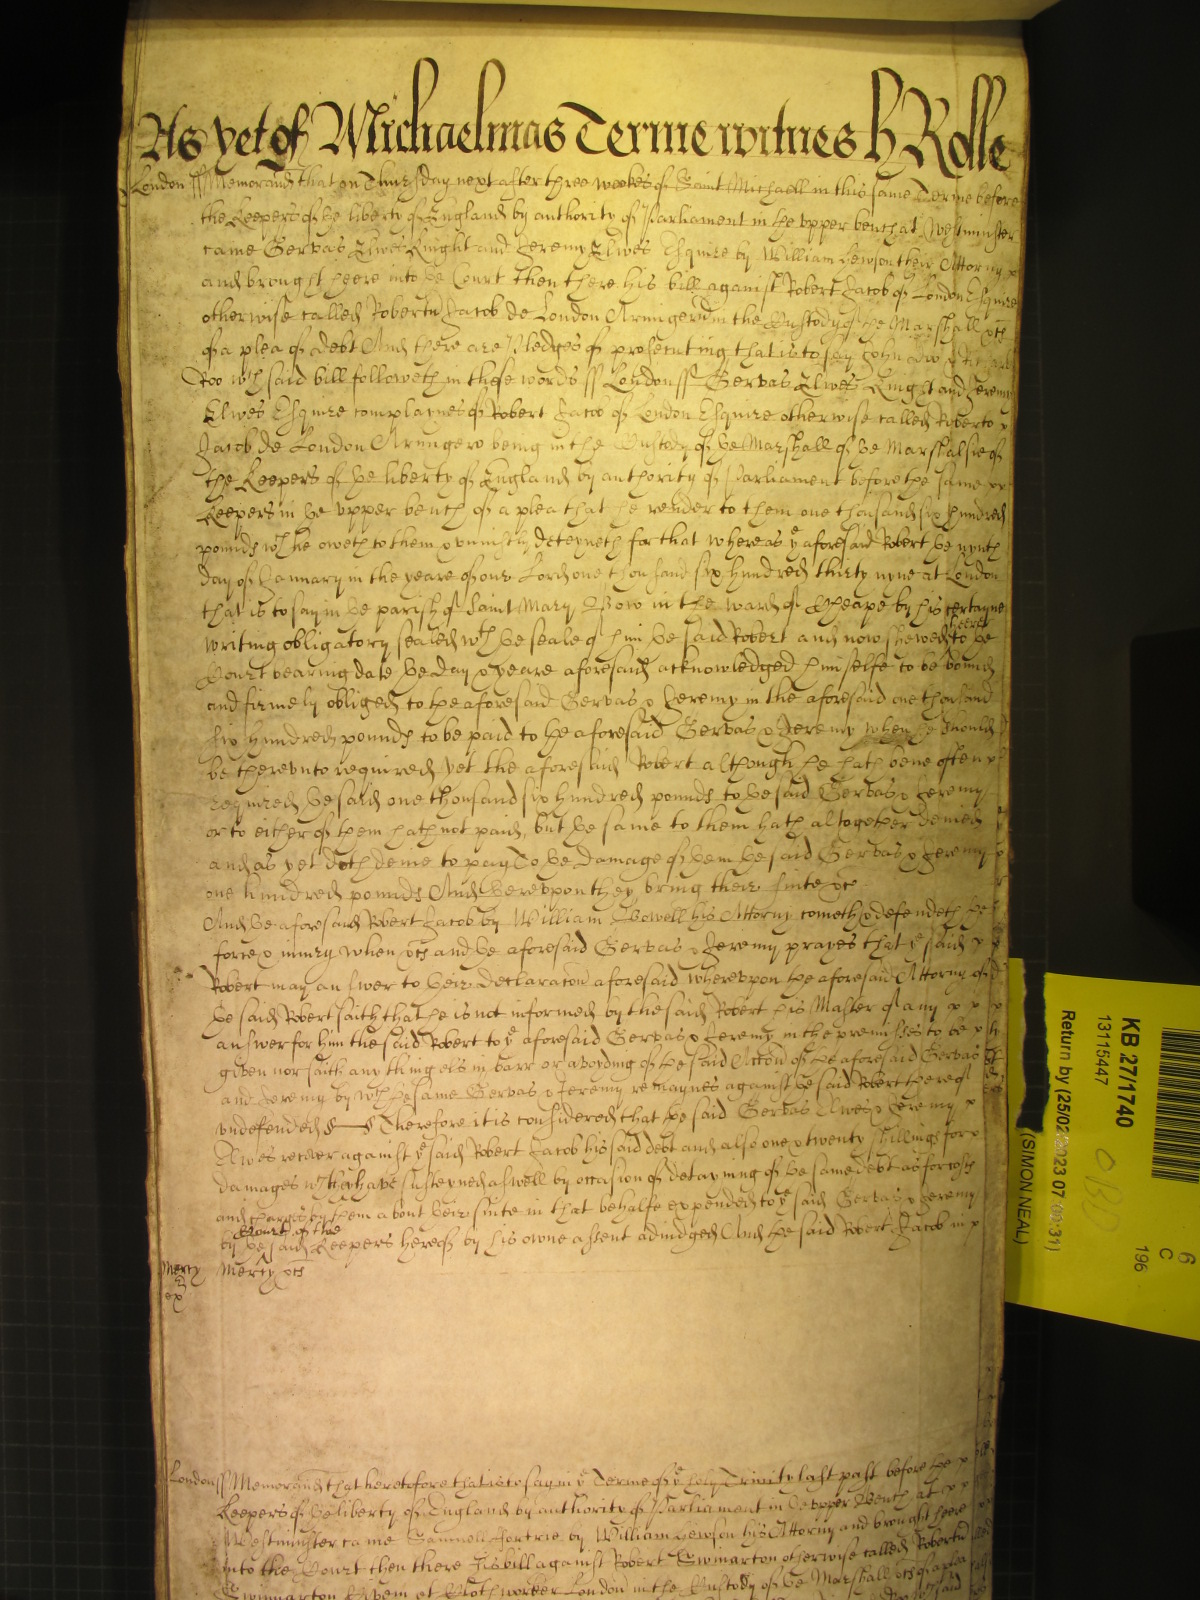 As yet of Michaelmas Terme witnes H Rolle
London ss Memorand that on Thursday next after three weekes of Saint Michaell in this same Terme before
the Keepers of the liberty of England by authority of Parliament in the upper bench at Westminster
came Gervas Elwes Knight and Jeremy Elwes Esquire by William Hewson their Attorny
and brought heere into ye Court then there his bill against Robert Jacob of London Esquire
otherwise called Roberto Jacob de London Armigero in the Custody of the Marshall &c
of a plea of debt And there are Pledges of prosecuting that is to say John Doo &
Roo wch said bill followeth in these words ss London ss Gervas Elwes Knight and Jeremy
Elwes Esquire complaynes of Robert Jacob of London Esquire otherwise called Roberto
Jacob de London Armigero being in the Custody of ye Marshall of ye Marshalsie of
the Keepers of ye liberty of England by authority of Parliament before the same
Keepers in ye upper bench of a plea that he render to them one thousand six hundred
pounds wch he oweth to them & uniustly deteyneth for that whereas ye aforesaid Robert ye nynth
day of January in the yeare of our Lord one thousand six hundred thirty nyne at London
that is to say in ye parish of Saint Mary Bow in the ward of Cheape by his certayne
writing obligatory sealed wth ye seale of him ye said Robert and now shewed heere to ye
Court bearing date ye day & yeare aforesaid acknowledged himselfe to be bound
and firmely obliged to the aforesaid Gervas & Jeremy in the aforesaid one thousand
six hundred pounds to be paid to the aforesaid Gervas & Jeremy when he should
be thereunto required yet the aforesaid Robert although he hath bene often
required ye said one thousand six hundred pounds to ye said Gervas & Jeremy
or to either of them hath not paid, but ye same to them hath altogether denied
and as yet doth denie to pay To ye damage of them ye said Gervas & Jeremy
one hundred pounds And thereupon they bring their suite &c
And ye aforesaid Robert Jacob by William Bowell his Attorny cometh & defendeth the
force & iniury when &c and ye aforesaid Gervas & Jeremy prayes that ye said
Robert may answer to their declaracon aforesaid whereupon the aforesaid Attorny of
ye said Robert saith that he is not informed by the said Robert his Master of any
answer for him the said Robert to ye aforesaid Gervas & Jeremy in the premisses to be
given nor saith any thing els in barr or avoyding of the said Accon of the aforesaid Gervas
and Jeremy by wch the same Gervas & Jeremy remaynes against ye said Robert thereof
undefended &c Therefore it is considered that the said Gervas Elwes & Jeremy
Elwes recover against ye said Robert Jacob his said debt and also one & twenty shillings for
damages wch they have susteyned aswell by occasion of detayning of ye same debt as for costs
and charges by them about their suite in that behalfe expended to ye said Gervas & Jeremy
by ye Court of the said Keepers heereof by his owne assent adiudged And the said Robert Jacob in
Mercy &c
Mercy
London ss Memorand that heretofore that is to say in ye Terme of ye holy Trinity last past before the
Keepers of ye liberty of England by authority of Parliament in ye upper Bench at
Westminster came Samuell Fortrie by William Hewson his Attorny and brought heere
into the Court then there his bill against Robert Swinarton otherwise called Roberto
Swinnarton Civem et Clothworker London in the Custody of ye Marshall &c of a plea
KB 27/1740
13115447
Return by (25/02/2023 07:00:31)
(SIMON NEAL)
6
C
196